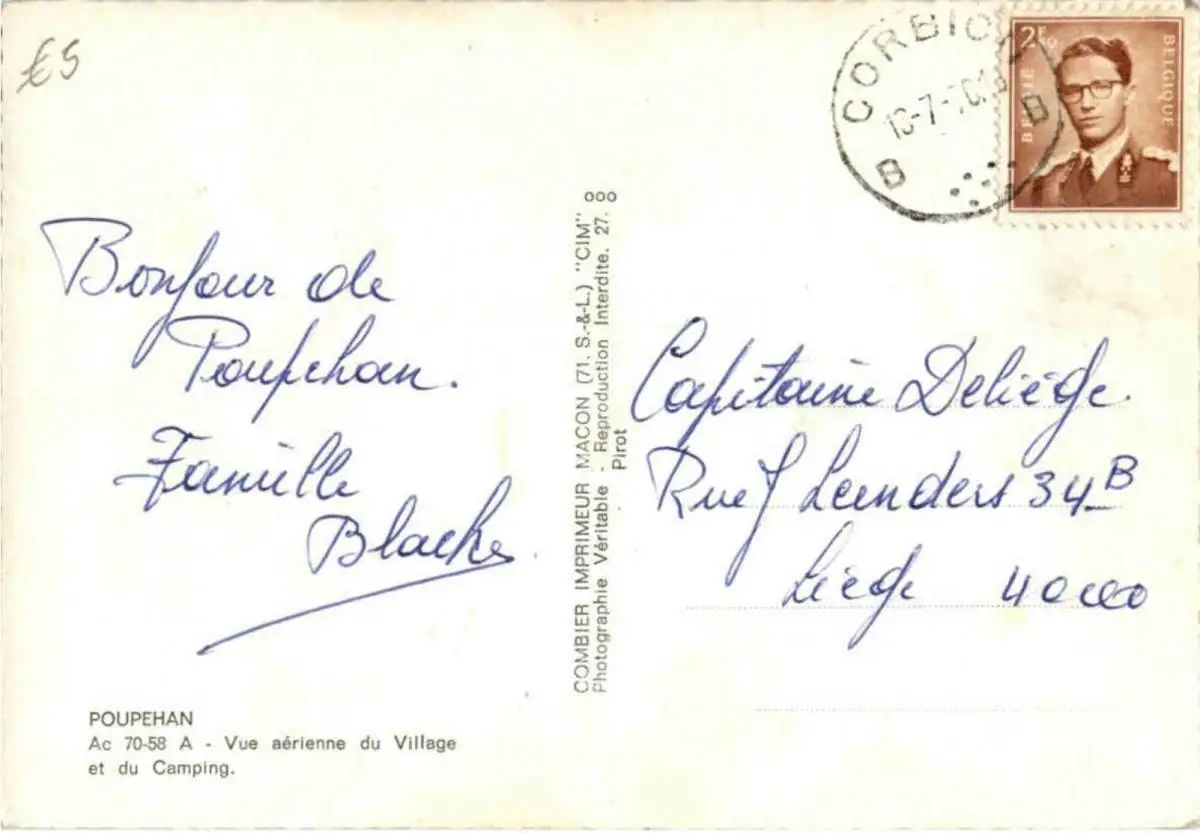 €5
CORBION
13-7-70
B B
2F50
BELGIË
BELGIQUE
Bonjour de
Poupehan.
Famille
Blache
COMBIER IMPRIMEUR MACON (71. S.-&-L.) "CIM"
Photographie Véritable - Reproduction Interdite. 27.
Pirot
Capitaine Deliège.
Rue J Leenders 34 B
Liège 4000
POUPEHAN
Ac 70-58 A - Vue aérienne du Village
et du Camping.